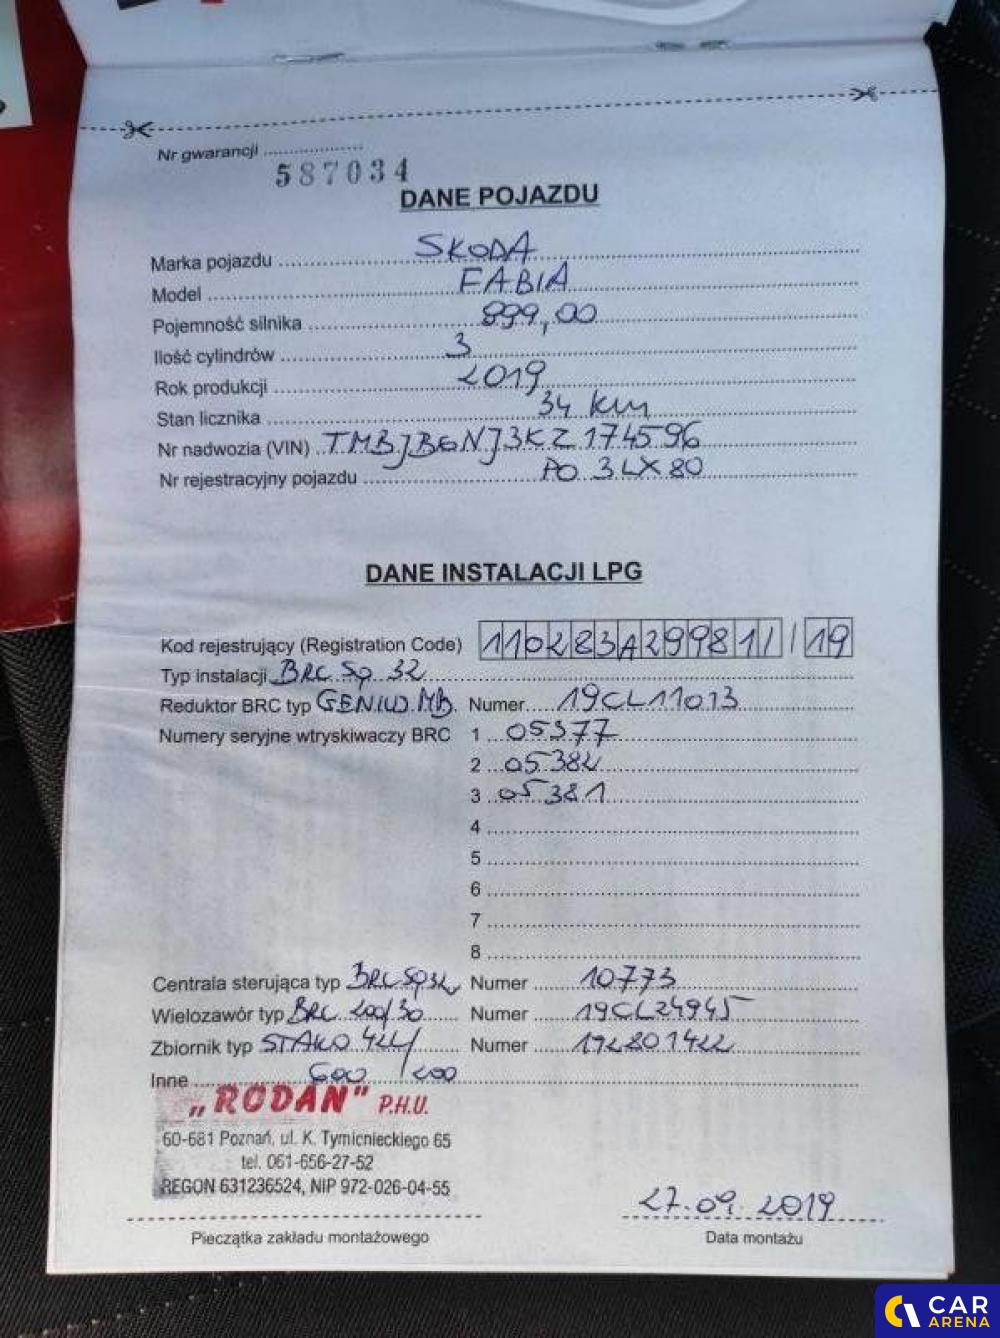 Nr gwarancji ....................
587034
DANE POJAZDU
Marka pojazdu SKODA
Model FABIA
Pojemność silnika 999,00
Ilość cylindrów 3
Rok produkcji 2019
Stan licznika 34 km
Nr nadwozia (VIN) TMBJB6NJ3KZ174596
Nr rejestracyjny pojazdu PO 3LX80
DANE INSTALACJI LPG
Kod rejestrujący (Registration Code) 110283A299811/ / 19
Typ instalacji BRC Sq 32
Reduktor BRC typ GENIUS MB. Numer 19CL11013
Numery seryjne wtryskiwaczy BRC 1 05377
2 05382
3 05381
4
5
6
7
8
Centrala sterująca typ BRC Sq32 Numer 10773
Wielozawór typ BRC 200/30 Numer 19CL24945
Zbiornik typ STAKO 42L Numer 192801422
Inne 600 / 200
„RODAN" P.H.U.
60-681 Poznań, ul. K. Tymienieckiego 65
tel. 061-656-27-52
REGON 631236524, NIP 972-026-04-55
27.09.2019
Pieczątka zakładu montażowego Data montażu
CAR
ARENA